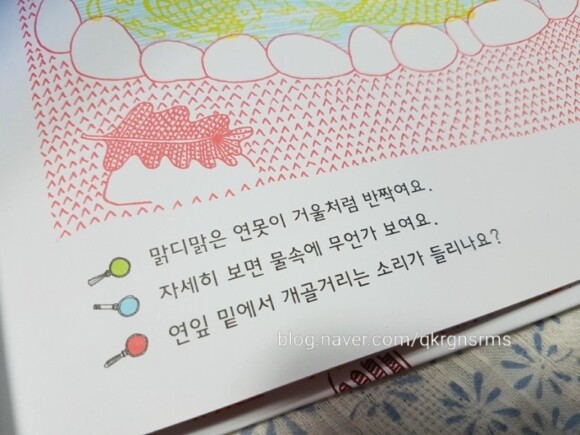 맑디맑은 연못이 거울처럼 반짝여요.
자세히 보면 물속에 무언가 보여요.
연잎 밑에서 개골거리는 소리가 들리나요?
blog.naver.com/qkrgnsrms